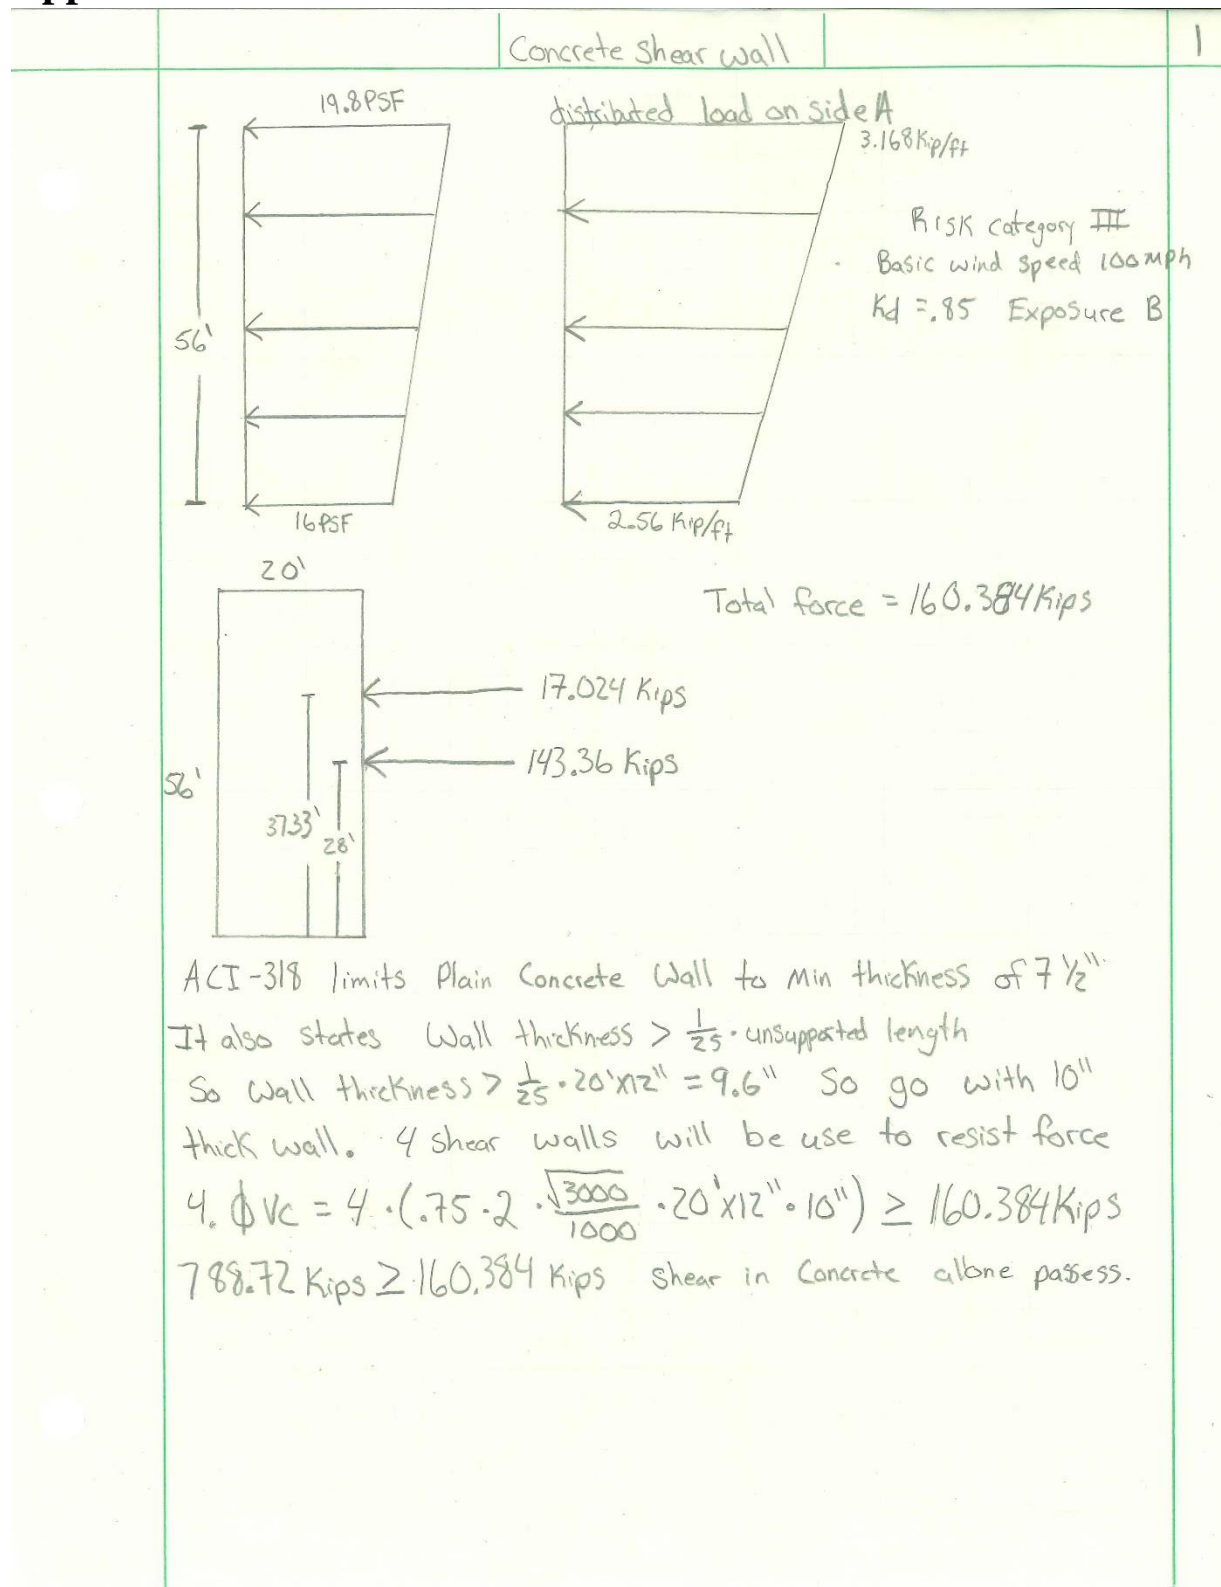 Concrete Shear wall
1
19.8PSF
distributed load on side A
3.168Kip/ft
Risk category III
Basic wind speed 100mph
Kd =.85 Exposure B
56'
16PSF
2.56 Kip/ft
20'
Total force = 160.384Kips
17.024 Kips
143.36 Kips
56'
37.33'
28'
ACI-318 limits Plain Concrete Wall to Min thickness of 7 1/2"
It also states Wall thickness > 1/25 · unsupported length
So Wall thickness > 1/25 · 20'x12" = 9.6" So go with 10"
thick wall. 4 Shear walls will be use to resist force
4. ϕVc = 4 ·(.75 ·2 · √3000/1000 ·20'x12"·10") ≥ 160.384Kips
788.72 Kips ≥ 160.384 Kips Shear in Concrete allone passess.